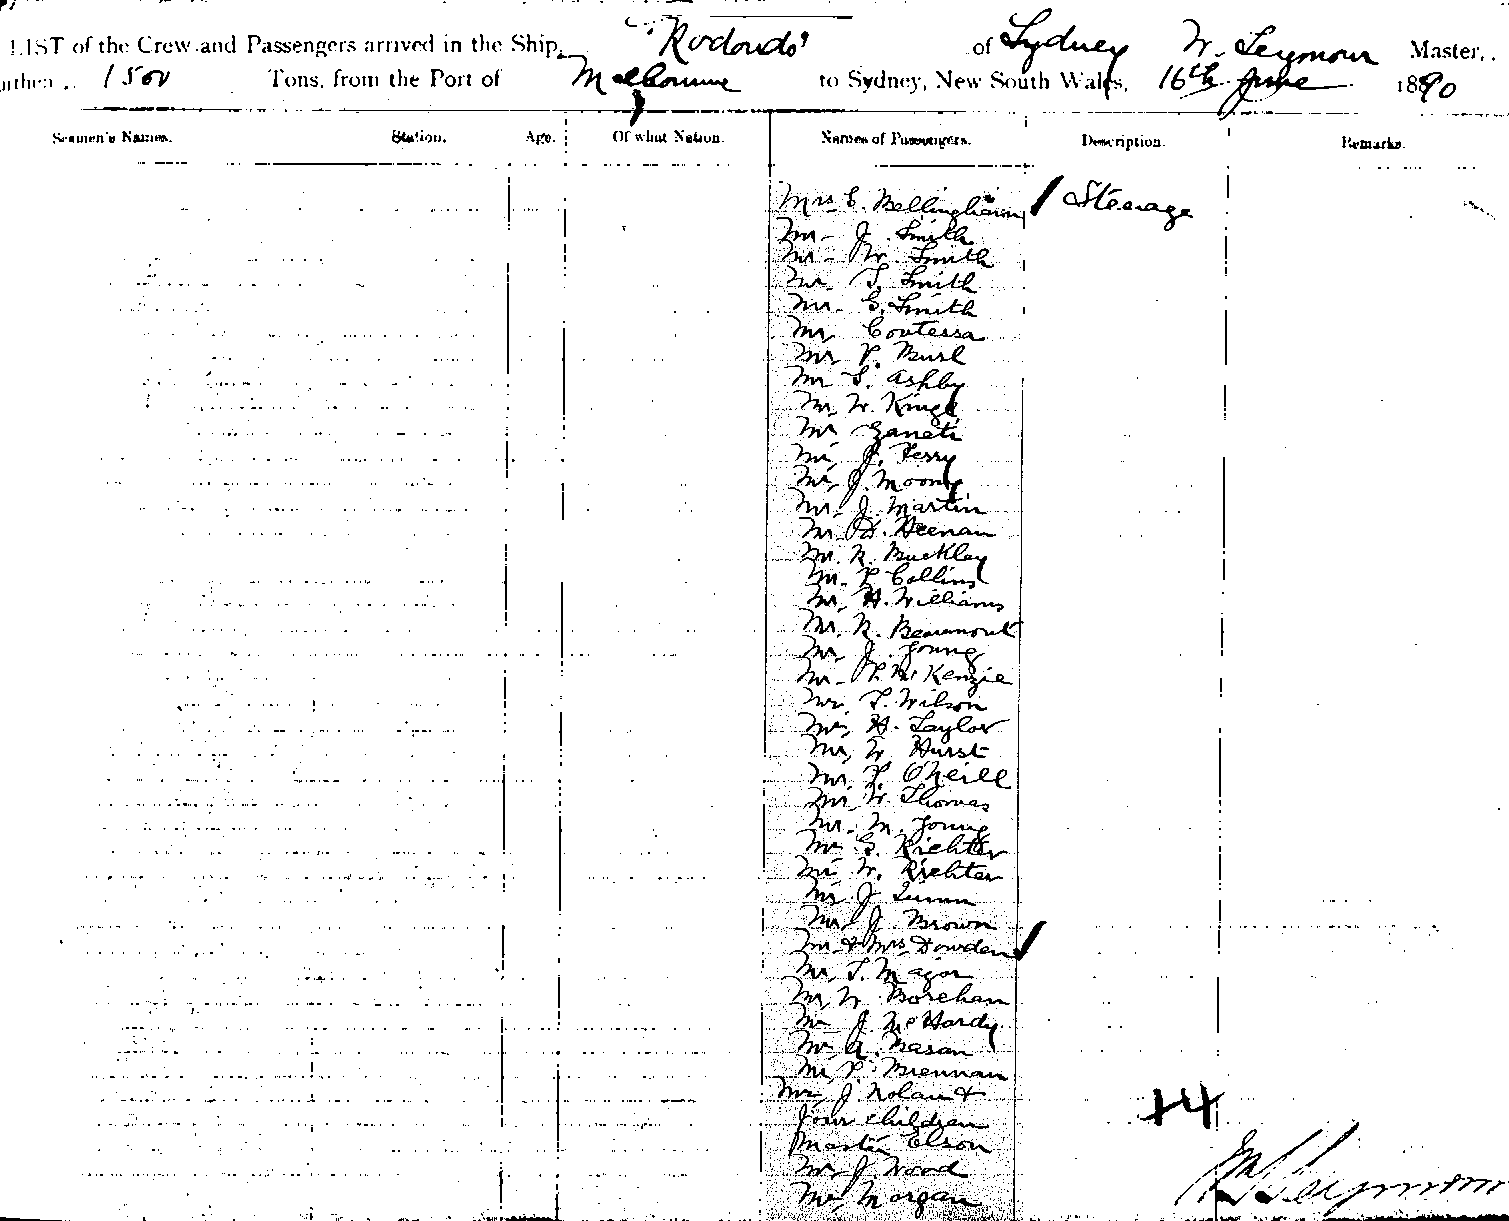 LIST of the Crew and Passengers arrived in the Ship, "Rodondo" of Sydney W. Seymour Master,
Burthen 1500 Tons, from the Port of Melbourne to Sydney, New South Wales, 16th June 1890
Seamen's Names. Station. Age. Of what Nation. Names of Passengers. Description. Remarks.
Mrs C. Bellingham Steerage
Mr J. Smith
Mr W. Smith
Mr T. Smith
Mr G. Smith
Mr Contessa
Mr P. Burl
Mr S. Ashby
Mr W. King
Mr Zaneti
Mr J. Terry
Mr J. Moony
Mr J. Martin
Mr D. Heenan
Mr R. Buckley
Mr P. Collins
Mr H. Williams
Mr R. Beaumont
Mr J. Young
Mr P. McKenzie
Mr T. Wilson
Mr H. Taylor
Mr W Hurst
Mr P. O'Neill
Mr W. Thomas
Mr M. Young
Mr G. Richter
Mr W. Richter
Mr J Quinn
Mr J. Brown
Mr & Mrs Dowden
Mr T. Major
Mr W Boreham
Mr J. McHardy
Mr A. Nasan
Mr P. Brennan
Mrs J Nolan &
four children
Master Elson
Mr J Wood
Mr Morgan
44
Wm Seymour